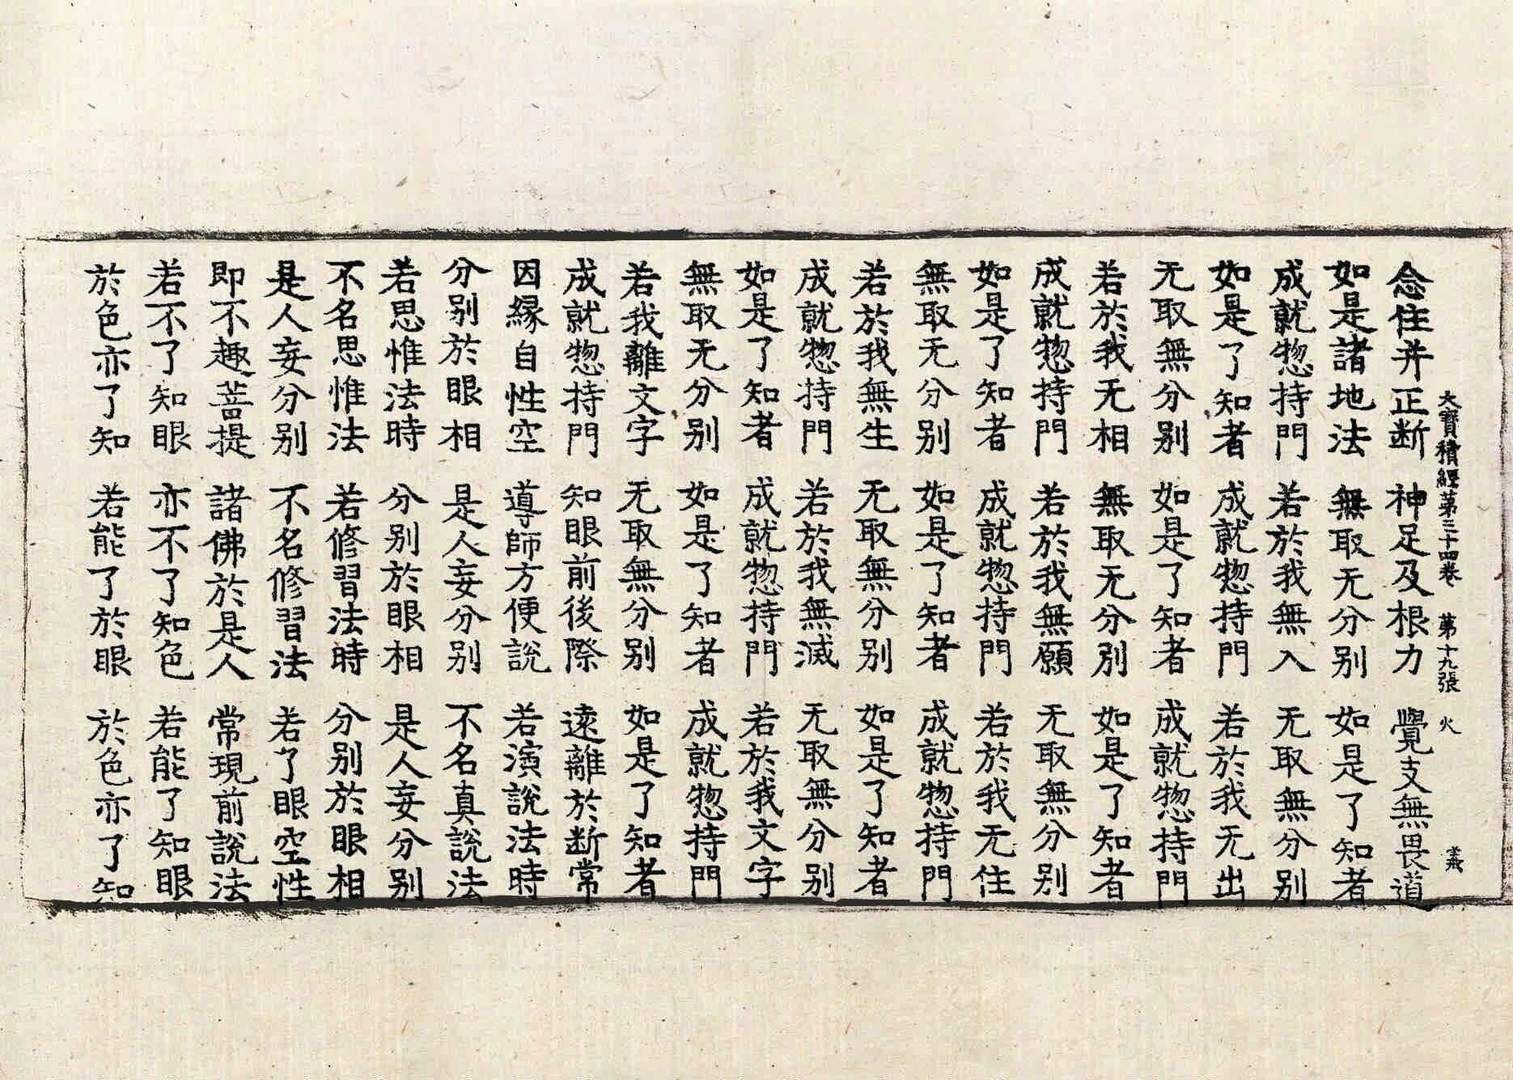 大寶積經第三十四卷 第十九張 火 義
念住并正断 神足及根力 覺支無畏道
如是諸地法 無取无分别 如是了知者
成就惣持門 若於我無入 无取無分别
如是了知者 成就惣持門 若於我无出
无取無分别 如是了知者 成就惣持門
若於我无相 無取无分别 如是了知者
成就惣持門 若於我無願 无取無分别
如是了知者 成就惣持門 若於我无住
無取无分别 如是了知者 成就惣持門
若於我無生 无取無分别 如是了知者
成就惣持門 若於我無滅 无取無分别
如是了知者 成就惣持門 若於我文字
無取无分别 如是了知者 成就惣持門
若我離文字 无取無分别 如是了知者
成就惣持門 知眼前後際 遠離於断常
因縁自性空 導師方便說 若演說法時
分别於眼相 是人妄分别 不名真說法
若思惟法時 分别於眼相 是人妄分别
不名思惟法 若修習法時 分别於眼相
是人妄分别 不名修習法 若了眼空性
即不趣菩提 諸佛於是人 常現前說法
若不了知眼 亦不了知色 若能了知眼
於色亦了知 若能了於眼 於色亦了知